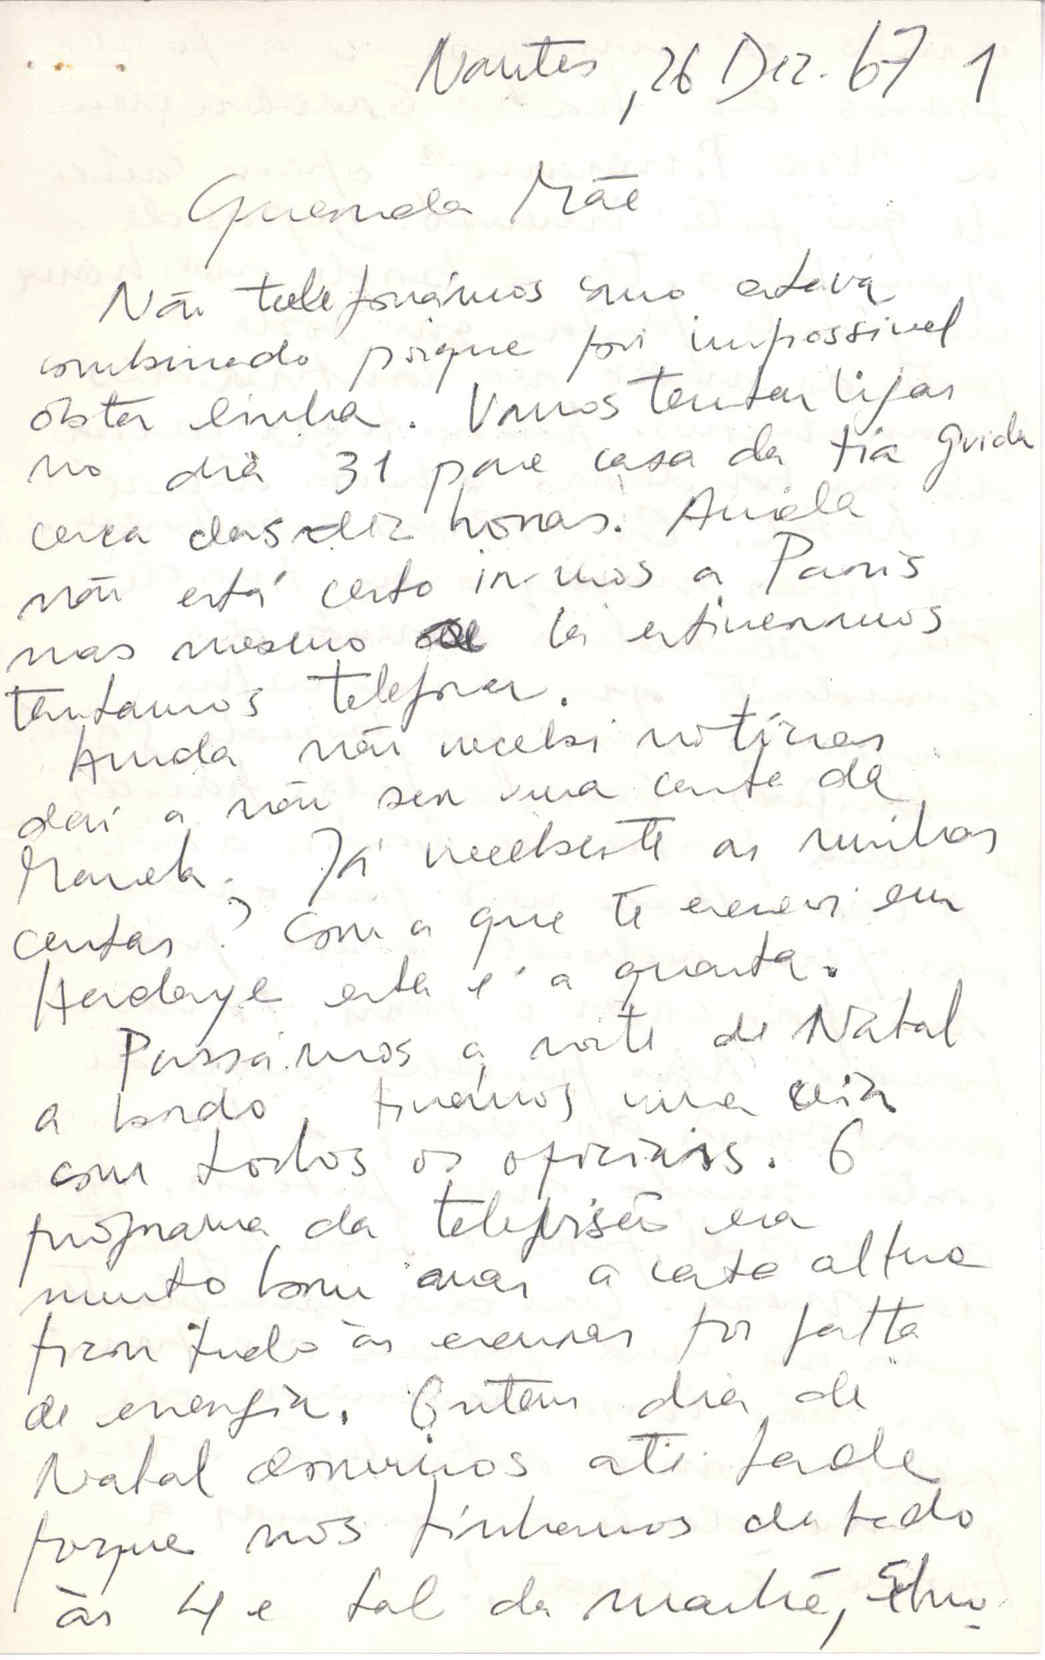 Nantes, 26 Dez. 67 1
Querida Mãe
Não telefonámos como estava
combinado porque foi impossivel
obter linha. Vamos tentar ligar
no dia 31 para casa da tia Guida
cerca das dez horas. Ainda
não está certo irmos a Paris
mas mesmo se lá estivermos
tentamos telefonar.
Ainda não recebi notícias
daí a não ser uma carta da
Já recebeste as minhas
cartas? Com a que te escrevi em
Hendaye esta é a quarta.
Passámos a noite de Natal
a bordo, fizémos uma ceia
com todos os oficiais. O
programa da televisão era
muito bom mas a certa altura
ficou tudo às escuras por falta
de energia. Ontem dia de
Natal dormimos até tarde
porque nos tinhamos deitado
às 4 e tal da manhã,